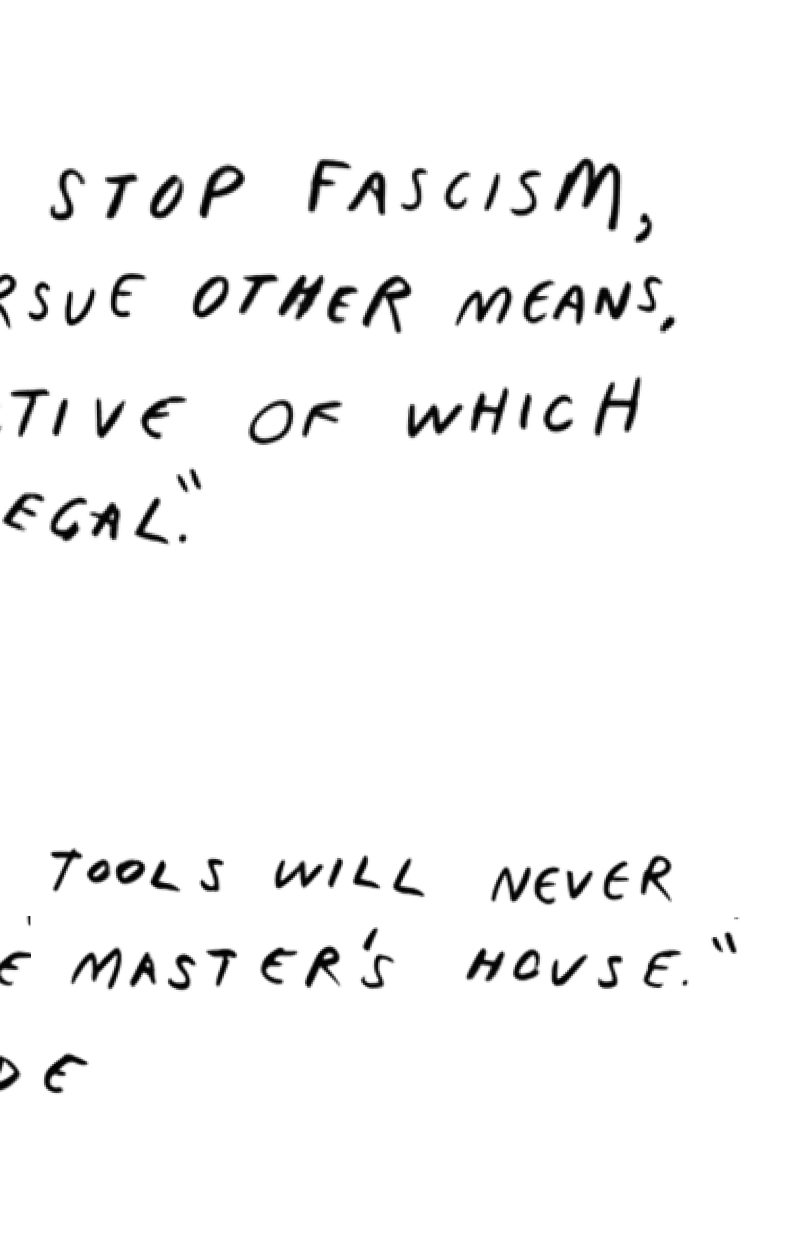 STOP FASCISM,
RSUE OTHER MEANS,
TIVE OF WHICH
EGAL."
TOOLS WILL NEVER
E MASTER'S HOUSE."
DE